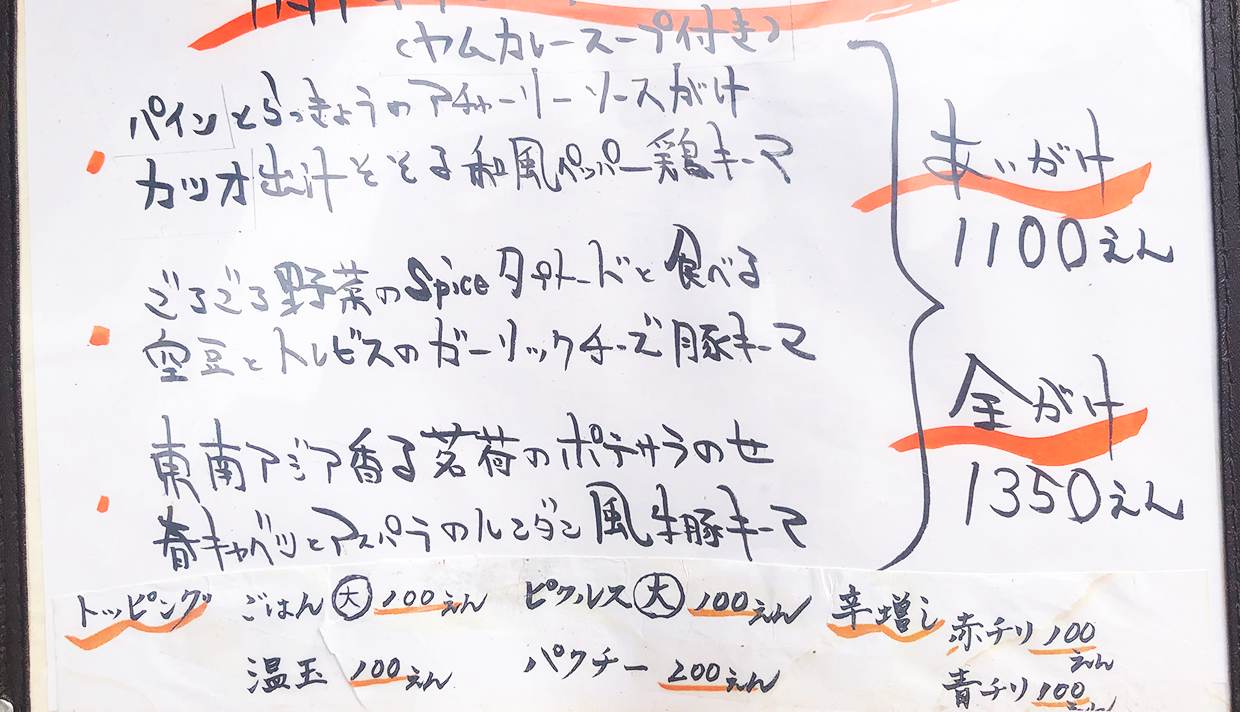 (ヤムカレースープ付き)
パインとらっきょうのアチャーリーソースがけ
カツオ出汁そそる和風ペッパー鶏キーマ
ごろごろ野菜のSpice タルタードと食べる
空豆とトレビスのガーリックチーズ豚キーマ
東南アジア香る茗荷のポテサラのせ
春キャベツとアスパラのルンダン風牛豚キーマ
あいがけ
1100えん
全がけ
1350えん
トッピング ごはん大 100えん ピクルス大 100えん 辛増し 赤チリ 100えん
温玉 100えん パクチー 200えん 青チリ 100えん